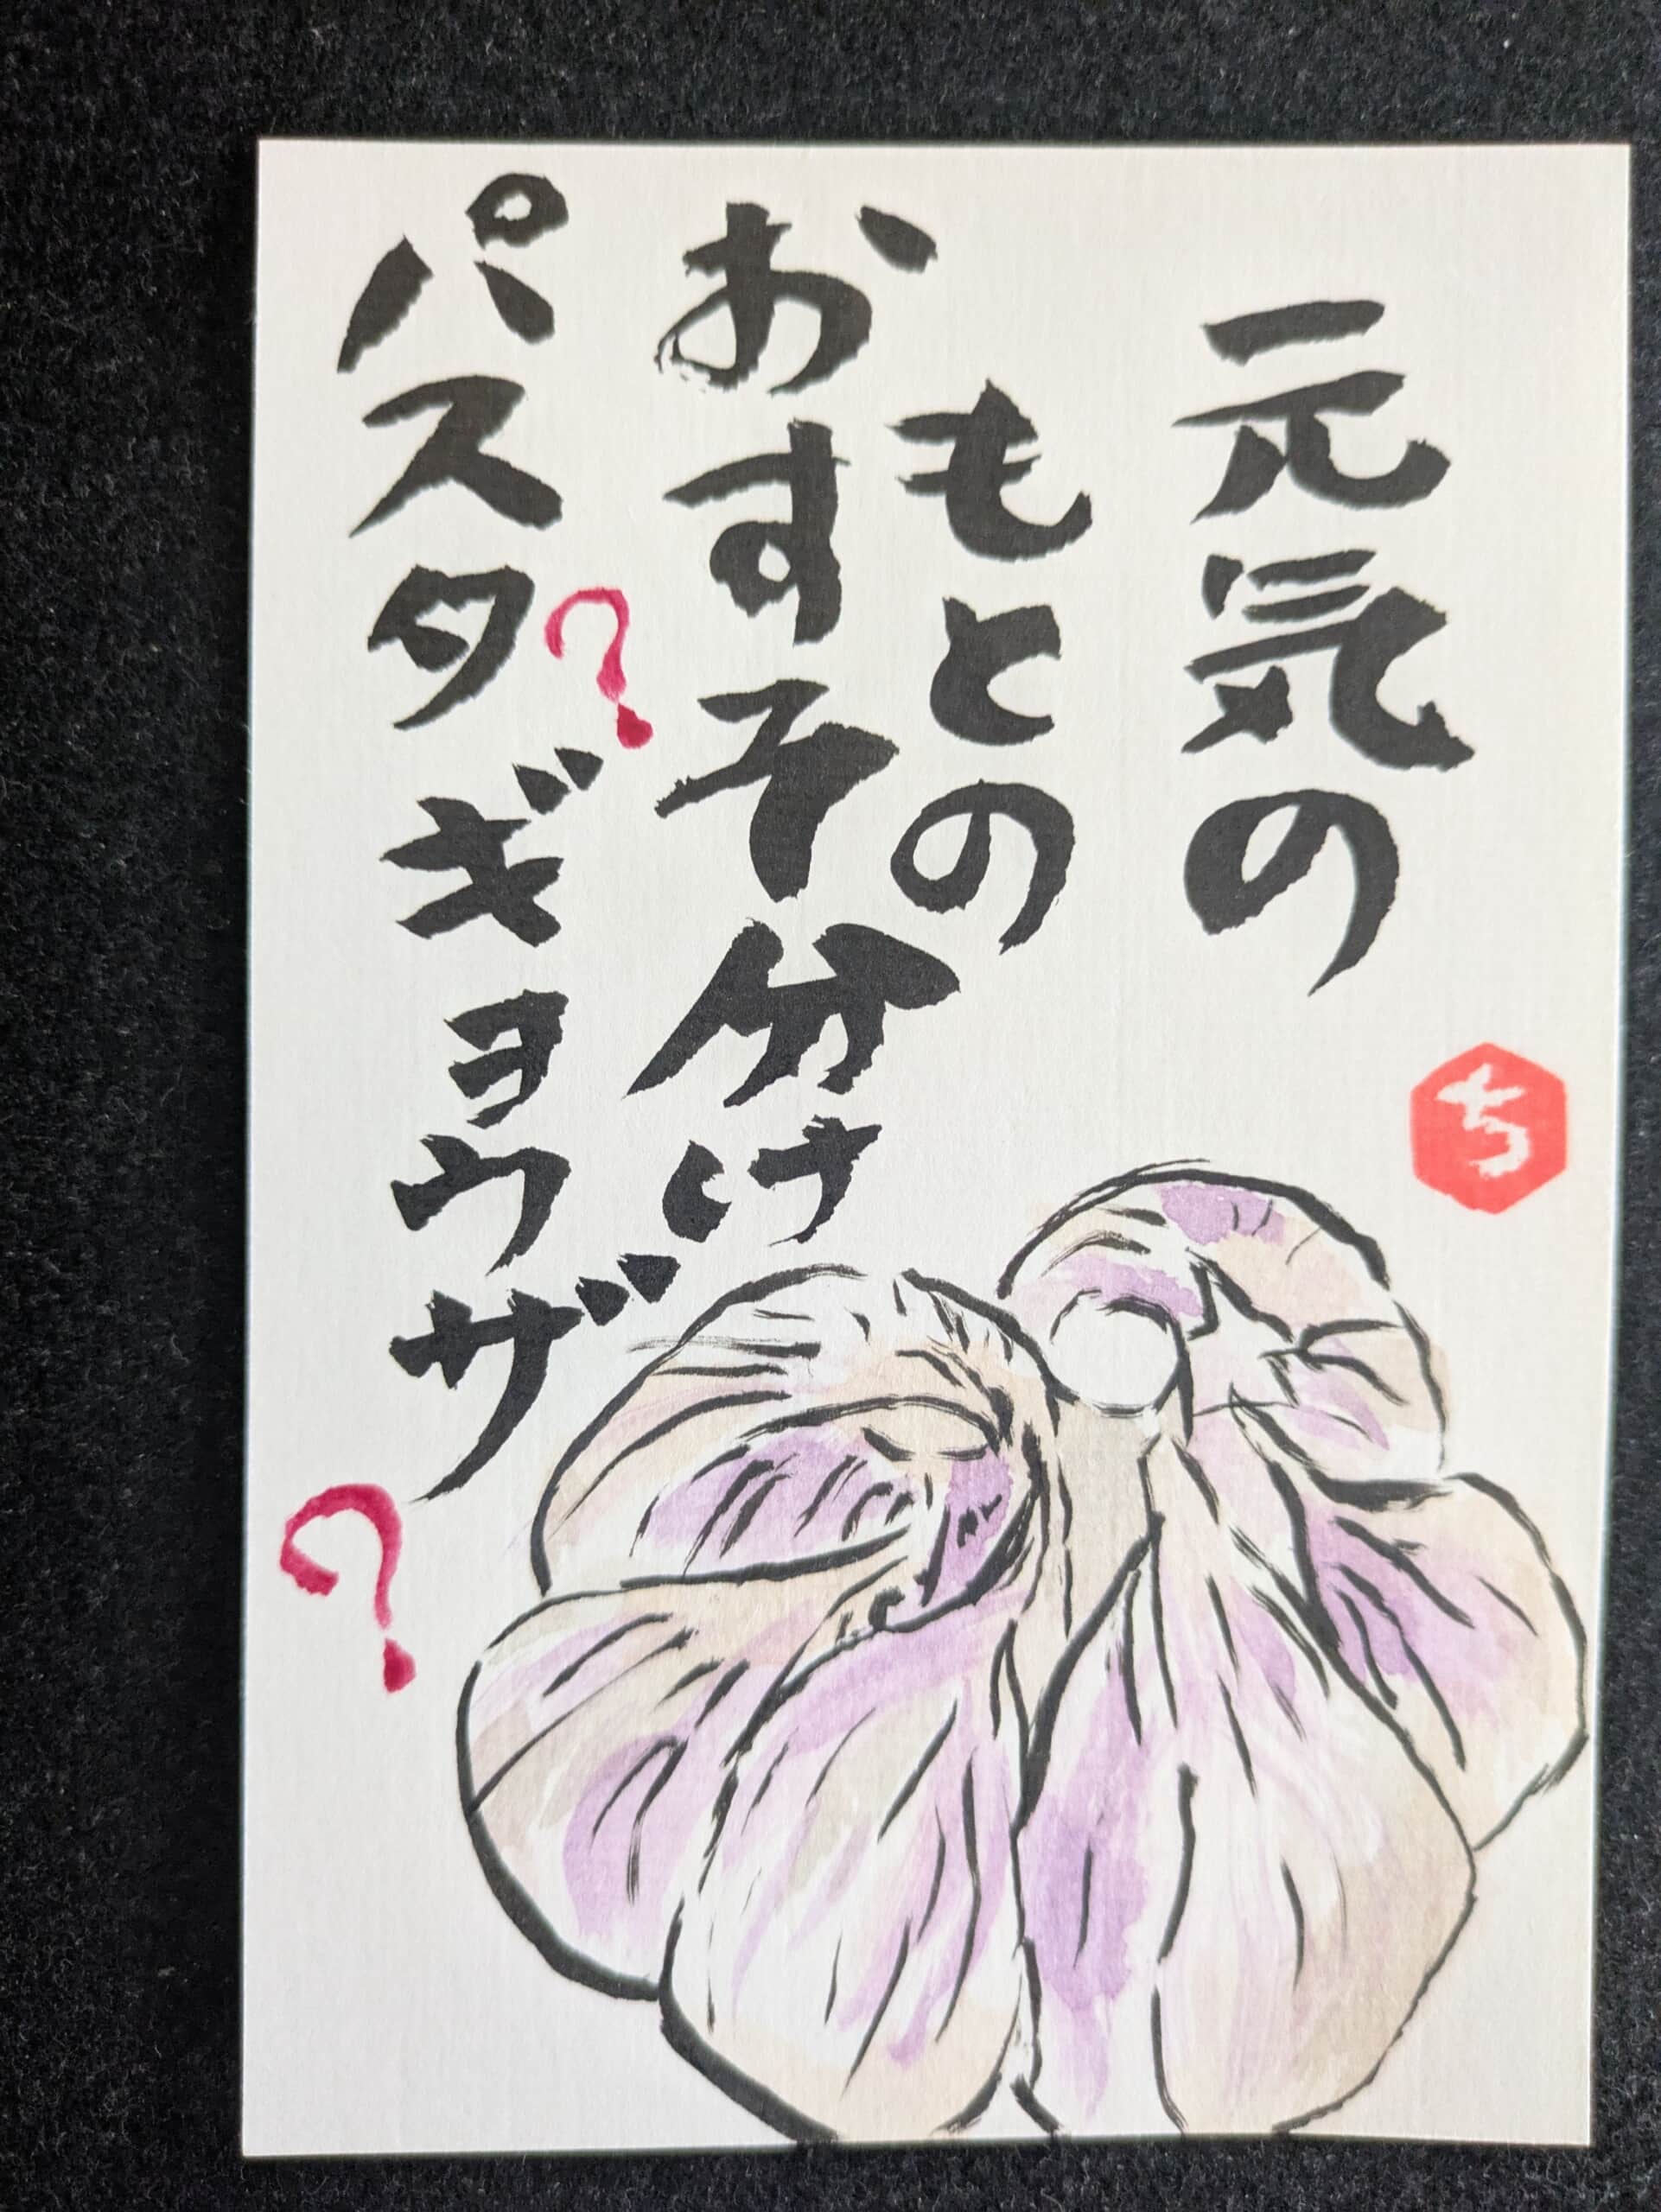 元気の
もとの
おすそ分け
パスタ?
ギョウザ?
ち